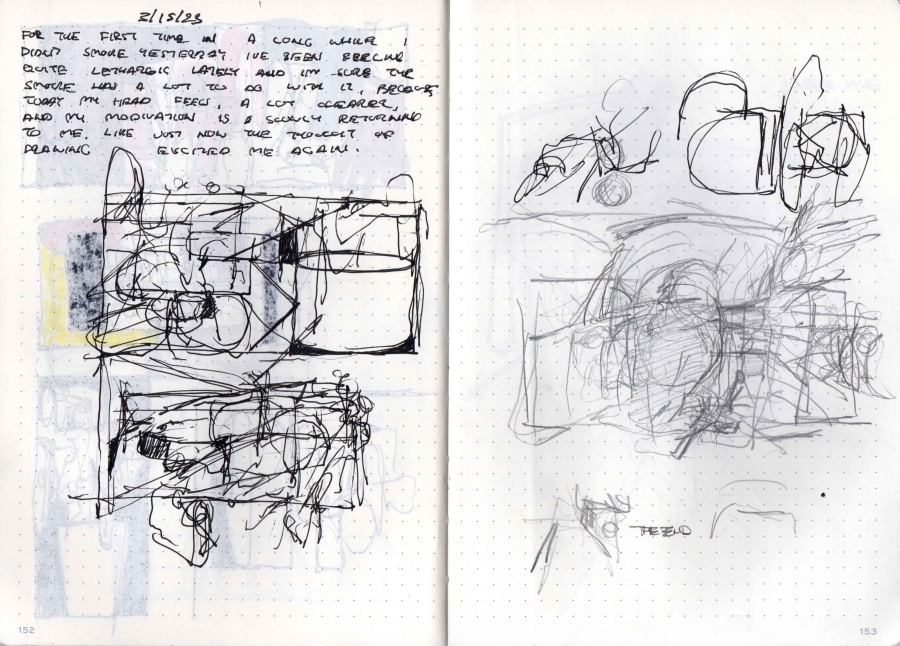 2/15/23
FOR THE FIRST TIME IN A LONG WHILE I
DIDN'T SMOKE YESTERDAY I'VE BEEN FEELING
QUITE LETHARGIC LATELY AND I'M SURE THE
SMOKE HAS A LOT TO DO WITH IT, BECAUSE
TODAY MY HEAD FEELS, A LOT CLEARER,
AND MY MODIVATION IS SLOWLY RETURNING
TO ME. LIKE JUST NOW THE THOUGHT OF
DRAWING EXCITED ME AGAIN.
THE END
152
153